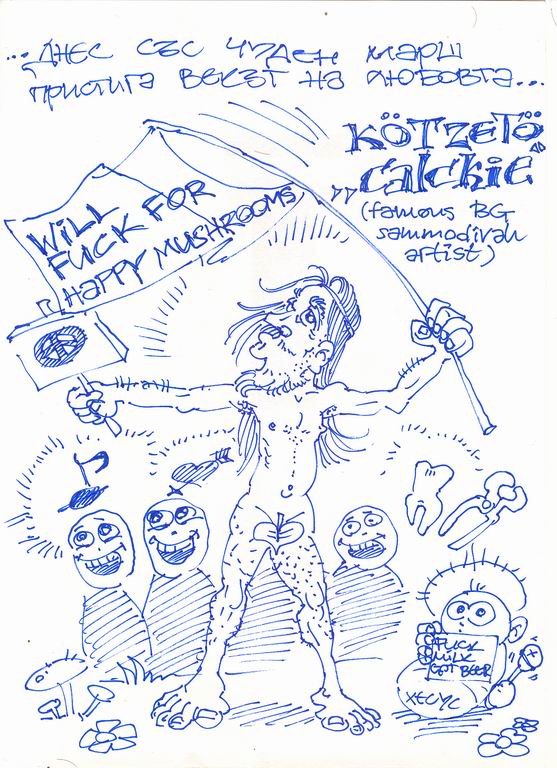 ...ДНЕС СЪС ЧУДЕН МАРШ
ПРИСТИГА ВЕКЪТ НА ЛЮБОВТА...
KÖTZETÖ
"Calckie"
(famous BG
sammodivan
artist)
WILL
FUCK FOR
HAPPY MUSHROOMS
FUCK
MILK
GOT BEER
ХЕСУС